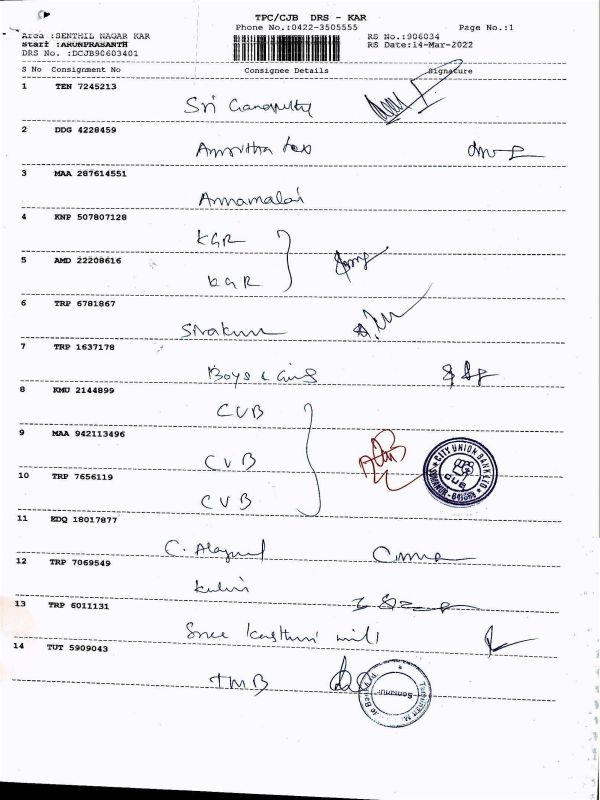 TPC/CJB DRS - KAR
Phone No.:0422-3505555
Page No.:1
Area :SENTHIL NAGAR KAR
RS No.:906034
Staff :ARUNPRASANTH
RS Date:14-Mar-2022
DRS No. :DCJB90603401
S No Consignment No Consignee Details Signature
1 TEN 7245213
Sri Ganapathy
2 DDG 4228459
Amirtha tex
3 MAA 287614551
Annamalai
4 KNP 507807128
KGR
5 AMD 22208616
KGR
6 TRP 6781867
Sivakum
7 TRP 1637178
Boys & Girls
8 KMU 2144899
CUB
9 MAA 942113496
CUB
CITY UNION BANK LTD
CUB
10 TRP 7656119
CUB
11 EDQ 18017877
C.
12 TRP 7069549
13 TRP 6011131
Sree Kasthuri mill
14 TUT 5909043
TMB